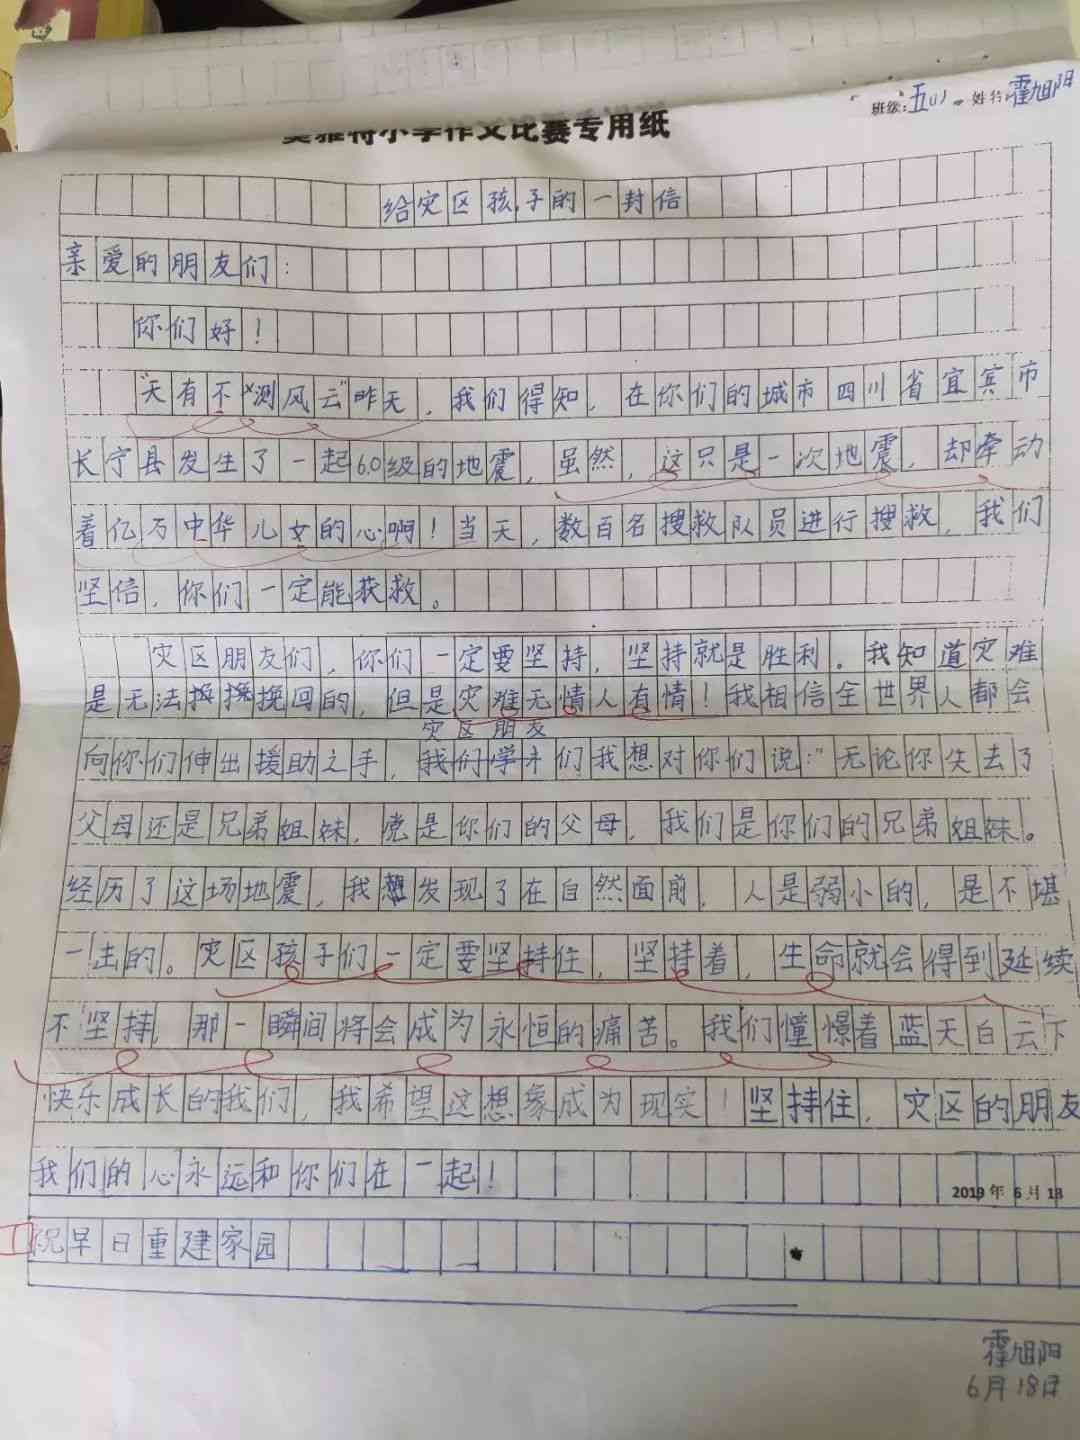 班级:五(1) 姓名:霍旭阳
小学作文比赛专用纸
给灾区孩子的一封信
亲爱的朋友们:
你们好!
"天有不测风云"昨天,我们得知,在你们的城市四川省宜宾市
长宁县发生了一起6.0级的地震,虽然,这只是一次地震,却牵动
着亿万中华儿女的心啊!当天,数百名搜救队员进行搜救,我们
坚信,你们一定能获救。
灾区朋友们,你们一定要坚持,坚持就是胜利。我知道灾难
是无法挽回的,但是灾难无情人有情!我相信全世界人都会
灾区朋友
向你们伸出援助之手,我们学才们我想对你们说:"无论你失去了
父母还是兄弟姐妹,党是你们的父母,我们是你们的兄弟姐妹。
经历了这场地震,我想发现了在自然面前,人是弱小的,是不堪
一击的。灾区孩子们一定要坚持住,坚持着,生命就会得到延续
不坚持,那一瞬间将会成为永恒的痛苦。我们憧憬着蓝天白云下
快乐成长的我们,我希望这想象成为现实!坚持住,灾区的朋友
我们的心永远和你们在一起!
2019年6月18
祝早日重建家园
霍旭阳
6月18日